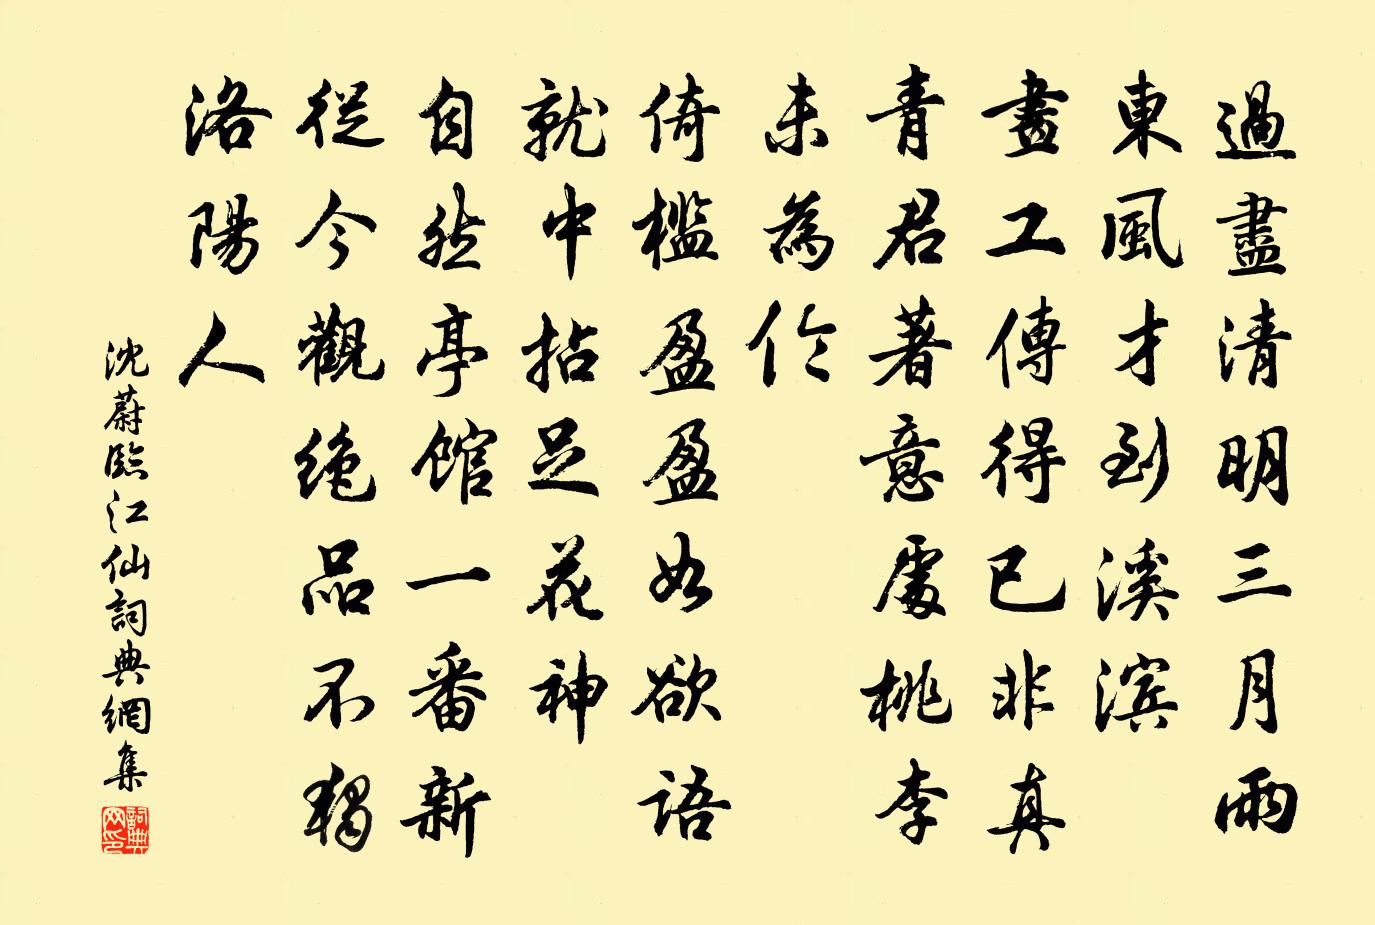 過盡清明三月雨
東風才到溪濱
畫工傳得已非真
青君著意處桃李
未為倫
倚檻盈盈如欲語
就中拈足花神
自然亭館一番新
從今觀絶品不獨
洛陽人
沈蔚臨江仙詞典網集
詞典网印